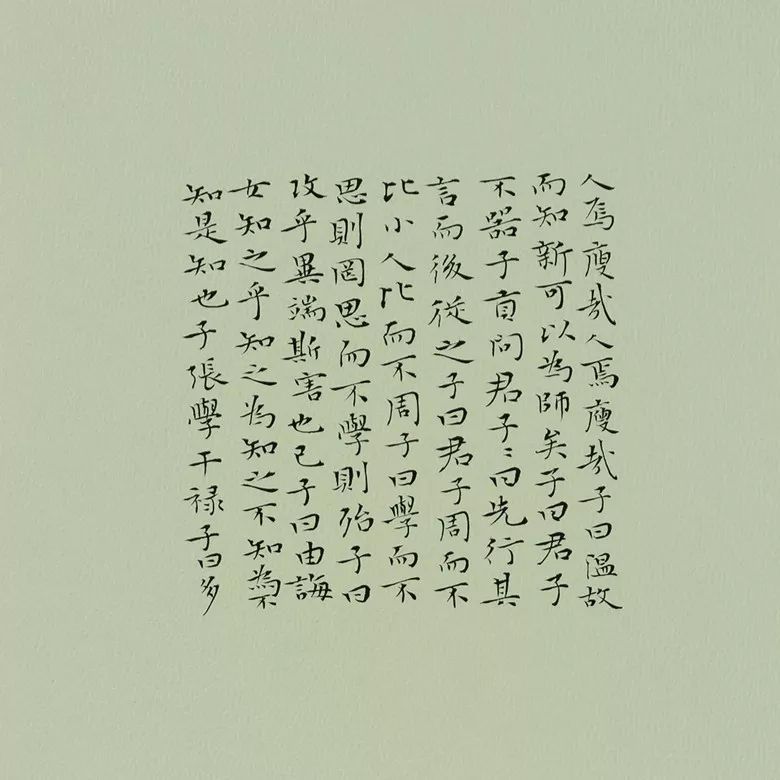 人焉廋哉人焉廋哉子曰溫故
而知新可以為師矣子曰君子
不器子貢問君子〻曰先行其
言而後從之子曰君子周而不
比小人比而不周子曰學而不
思則罔思而不學則殆子曰
攻乎異端斯害也已子曰由誨
女知之乎知之為知之不知為不
知是知也子張學干祿子曰多